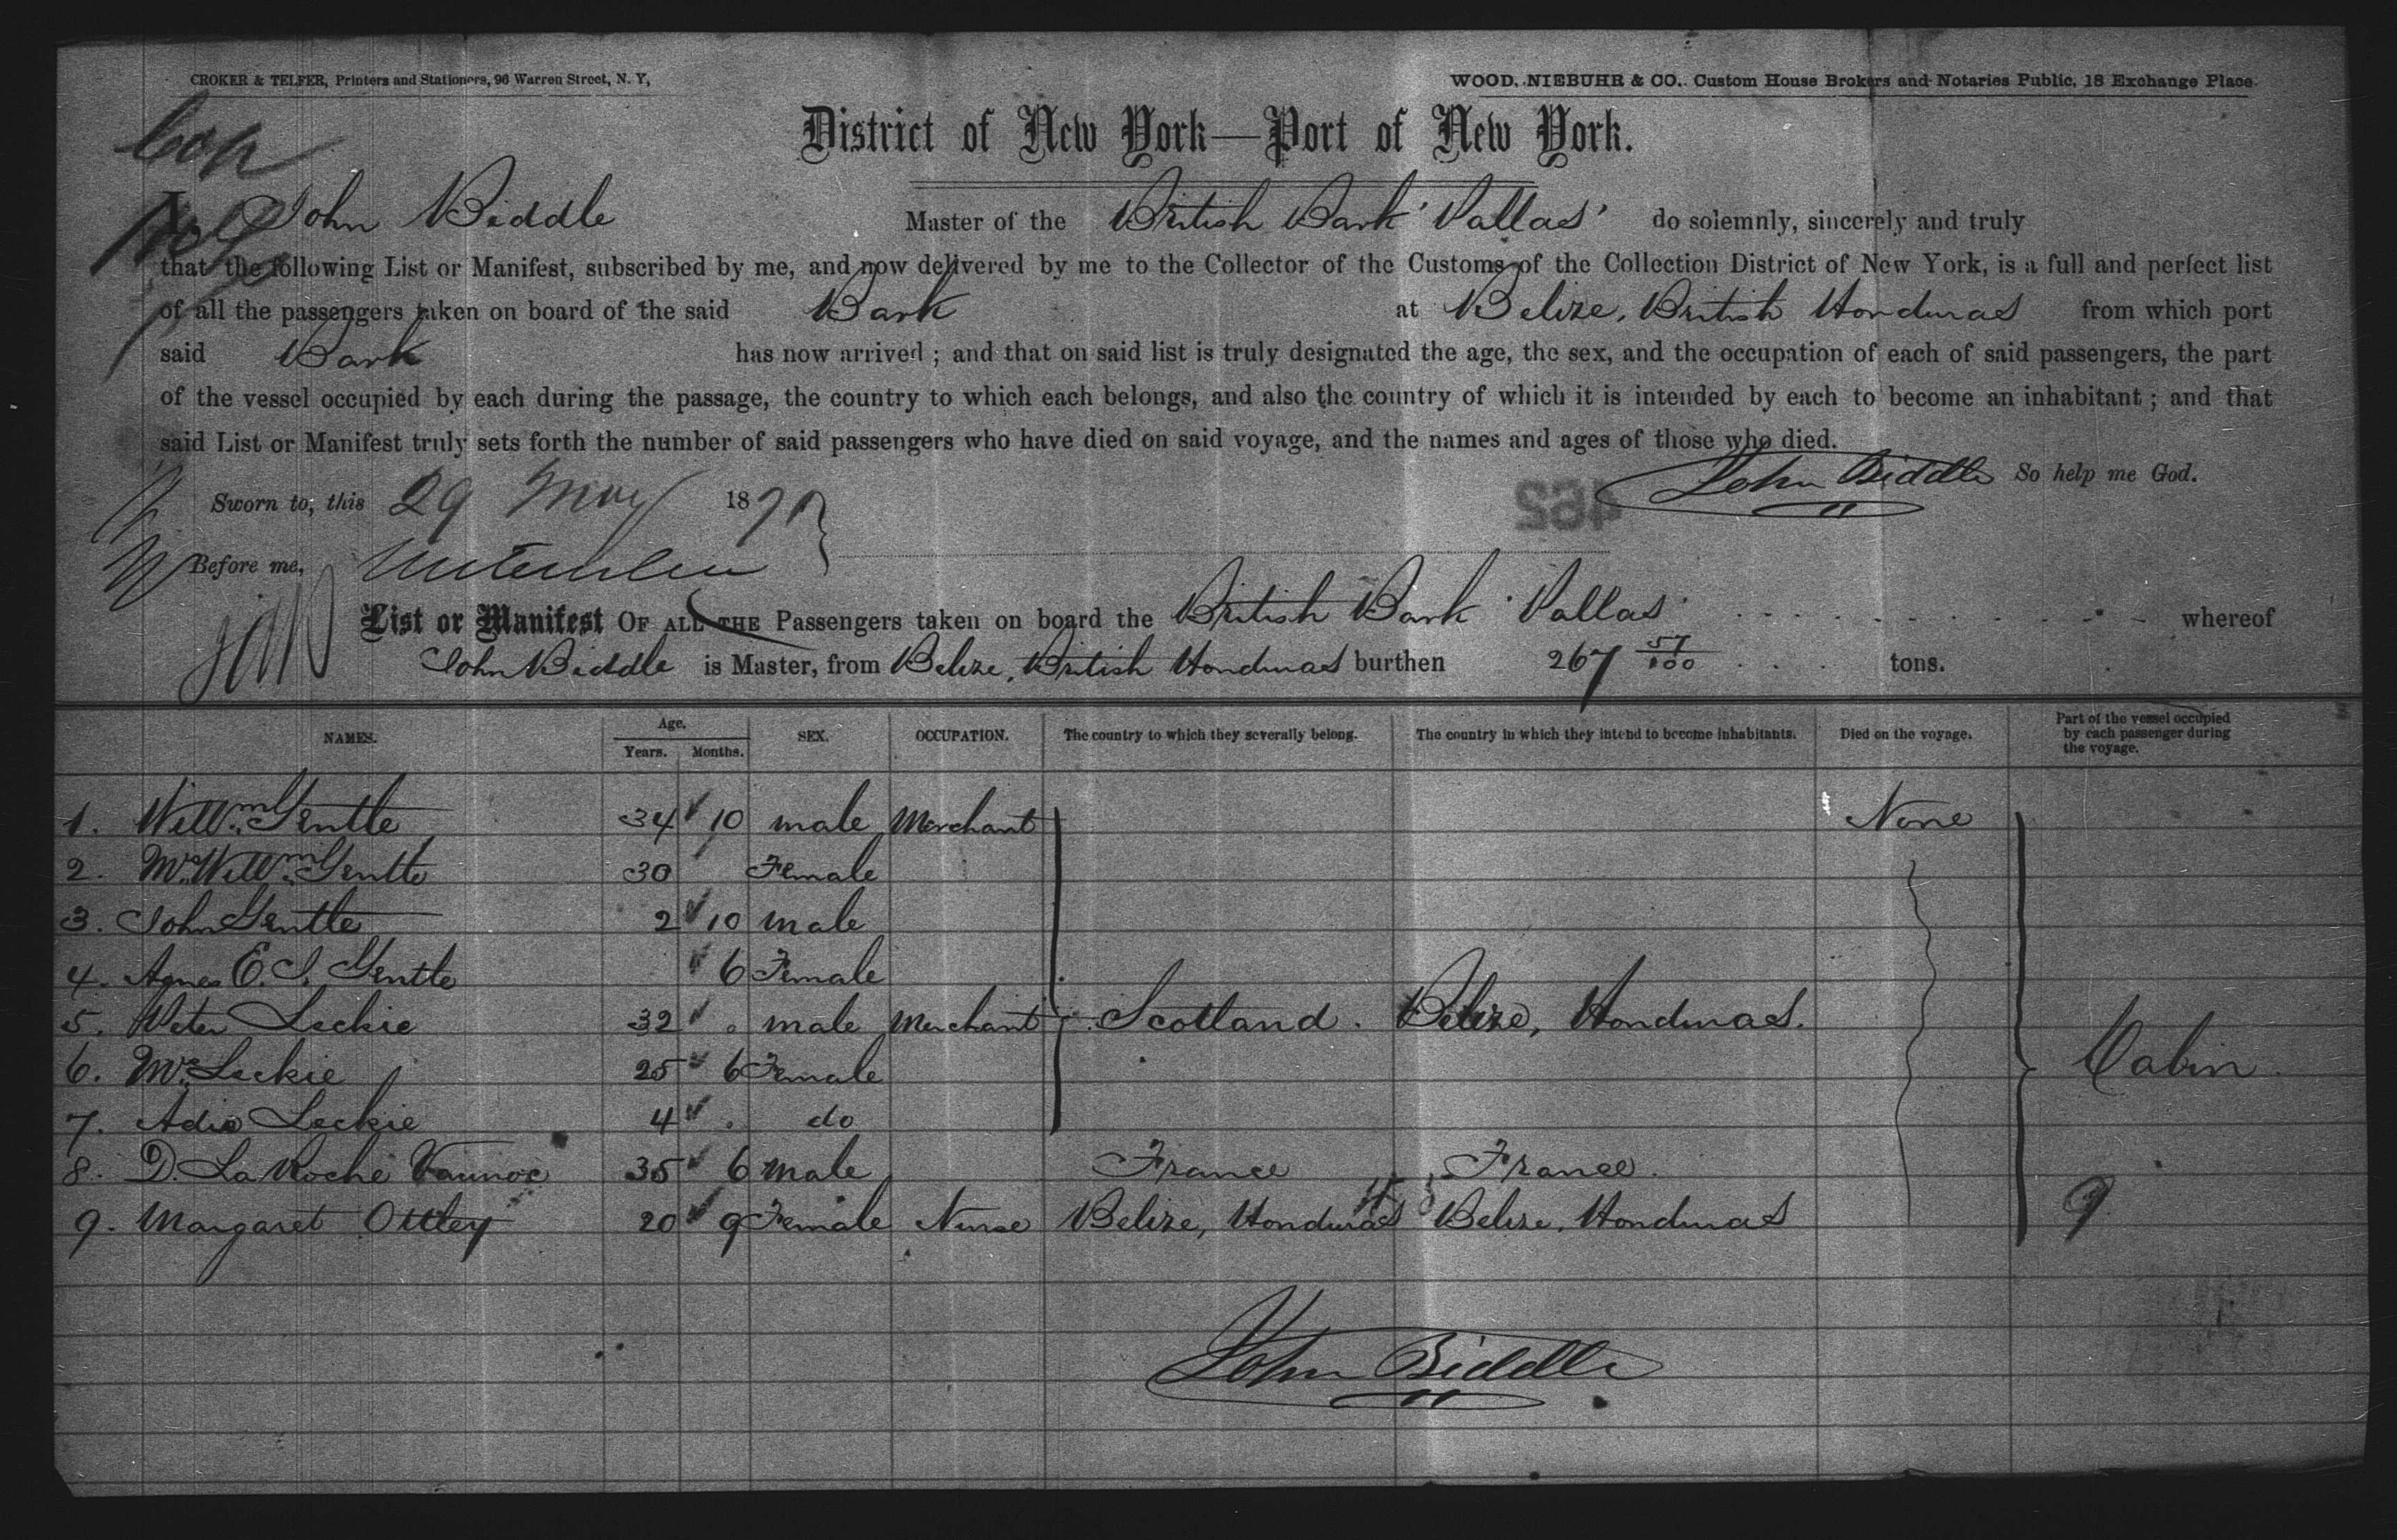 CROKER & TELFER, Printers and Stationers, 96 Warren Street, N. Y,
WOOD, NIEBUHR & CO. Custom House Brokers and Notaries Public, 18 Exchange Place
District of New York—Port of New York.
I John Biddle Master of the British Bark 'Pallas' do solemnly, sincerely and truly
that the following List or Manifest, subscribed by me, and now delivered by me to the Collector of the Customs of the Collection District of New York, is a full and perfect list
of all the passengers taken on board of the said Bark at Belize, British Honduras from which port
said Bark has now arrived ; and that on said list is truly designated the age, the sex, and the occupation of each of said passengers, the part
of the vessel occupied by each during the passage, the country to which each belongs, and also the country of which it is intended by each to become an inhabitant ; and that
said List or Manifest truly sets forth the number of said passengers who have died on said voyage, and the names and ages of those who died.
John Biddle So help me God.
Sworn to, this 29 May 187
462
Before me,
List or Manifest OF ALL THE Passengers taken on board the British Bark 'Pallas' whereof
John Biddle is Master, from Belize, British Honduras burthen 267 57/100 tons.
NAMES. Age. Years. Months. SEX. OCCUPATION. The country to which they severally belong. The country in which they intend to become inhabitants. Died on the voyage. Part of the vessel occupied by each passenger during the voyage.
1. Willm Gentle 34 10 male Merchant None
2. Mrs Willm Gentle 30 Female
3. John Gentle 2 10 male
4. Agnes E. S. Gentle 6 Female
5. Peter Leckie 32 male Merchant Scotland. Belize, Honduras.
6. Mrs Leckie 25 6 Female Cabin
7. Adie Leckie 4 do
8. D. La Roche 35 6 male France France.
9. Margaret Ottley 20 9 Female Nurse Belize, Honduras Belize, Honduras 9
John Biddle